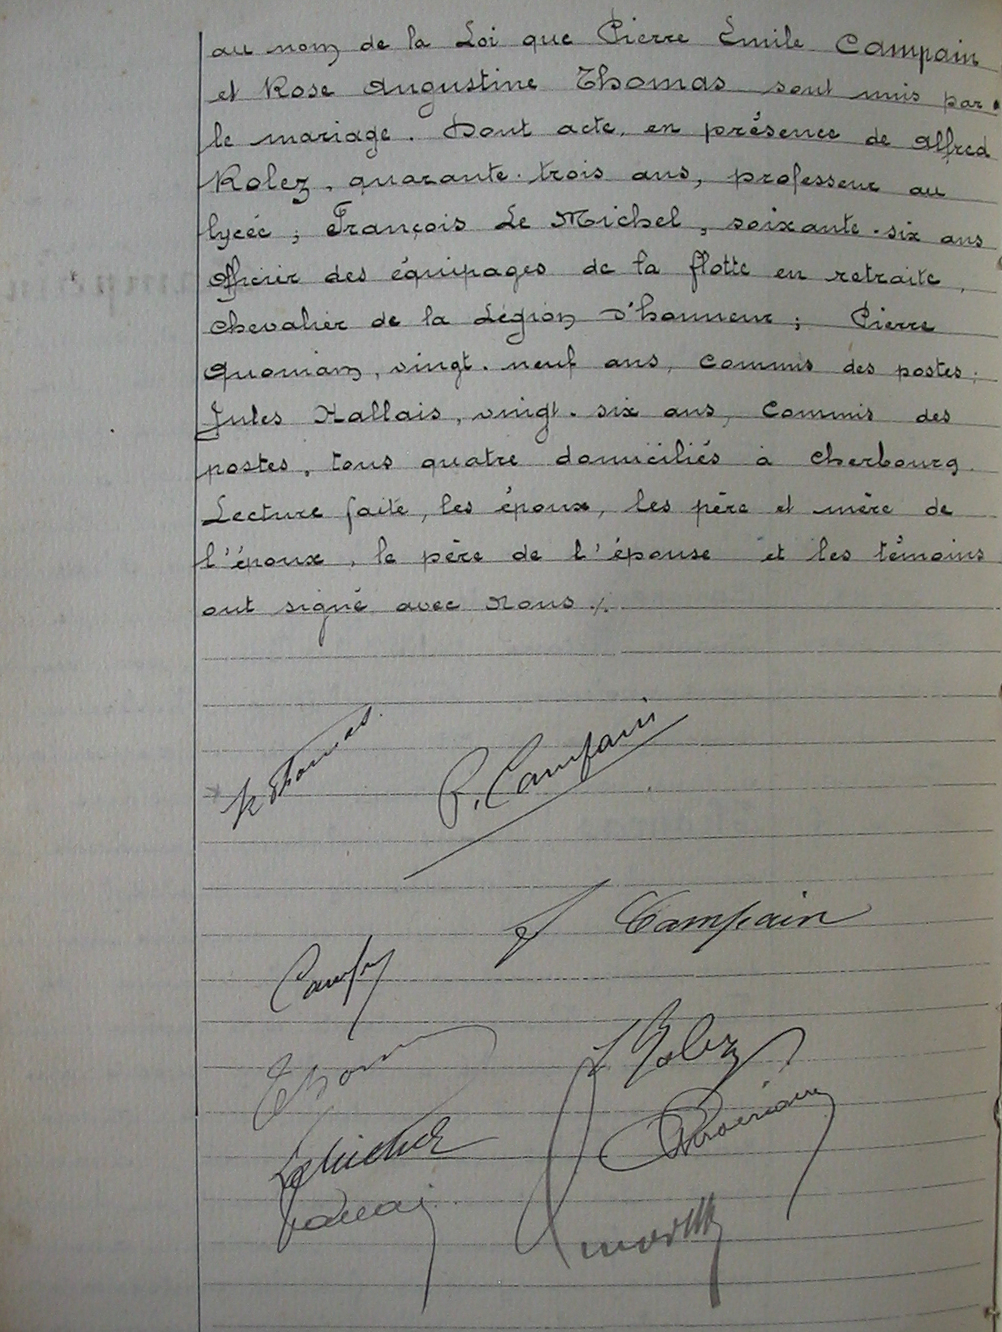 au nom de la Loi que Pierre Emile Campain
et Rose Augustine Thomas sont unis par
le mariage. Dont acte, en présence de Alfred
Rolez, quarante-trois ans, professeur au
lycée; François Le Michel, soixante-six ans
officier des équipages de la flotte en retraite,
Chevalier de la Légion d'honneur; Pierre
Quoniam, vingt-neuf ans, commis des postes;
Jules Hallais, vingt-six ans, commis des
postes, tous quatre domiciliés à Cherbourg.
Lecture faite, les époux, les père et mère de
l'époux, le père de l'épouse et les témoins
ont signé avec Nous ./.
R Thomas
P. Campain
Campain
Thomas
Rolez
Lemichel
Quoniam
Hallais